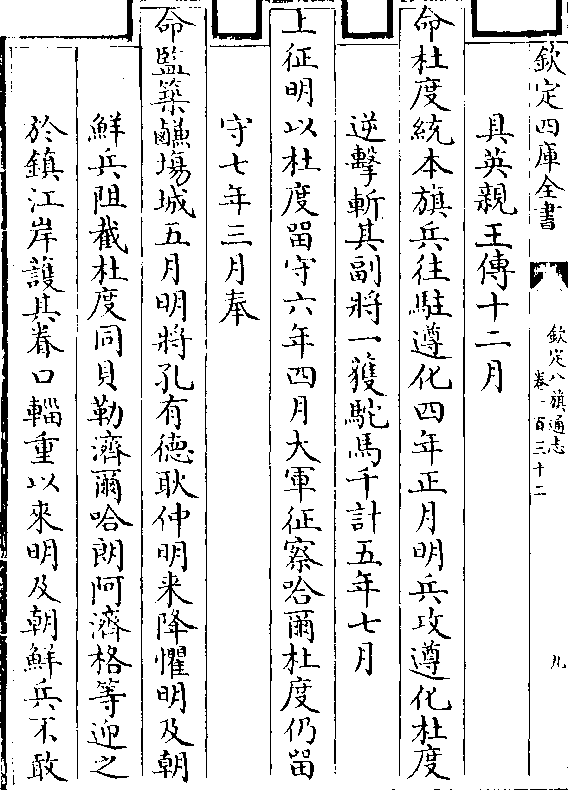 欽定四庫全書
欽定八旗通志
卷一百三十二
九
具英親王傳十二月
命杜度統本旗兵往駐遵化四年正月明兵攻遵化杜度
逆擊斬其副將一獲駝馬千計五年七月
上征明以杜度留守六年四月大軍征察哈爾杜度仍留
守七年三月奉
命監築鹻塲城五月明將孔有德耿仲明来降懼明及朝
鮮兵阻截杜度同貝勒濟爾哈朗阿濟格等迎之
於鎮江岸護其眷口輜重以來明及朝鮮兵不敢